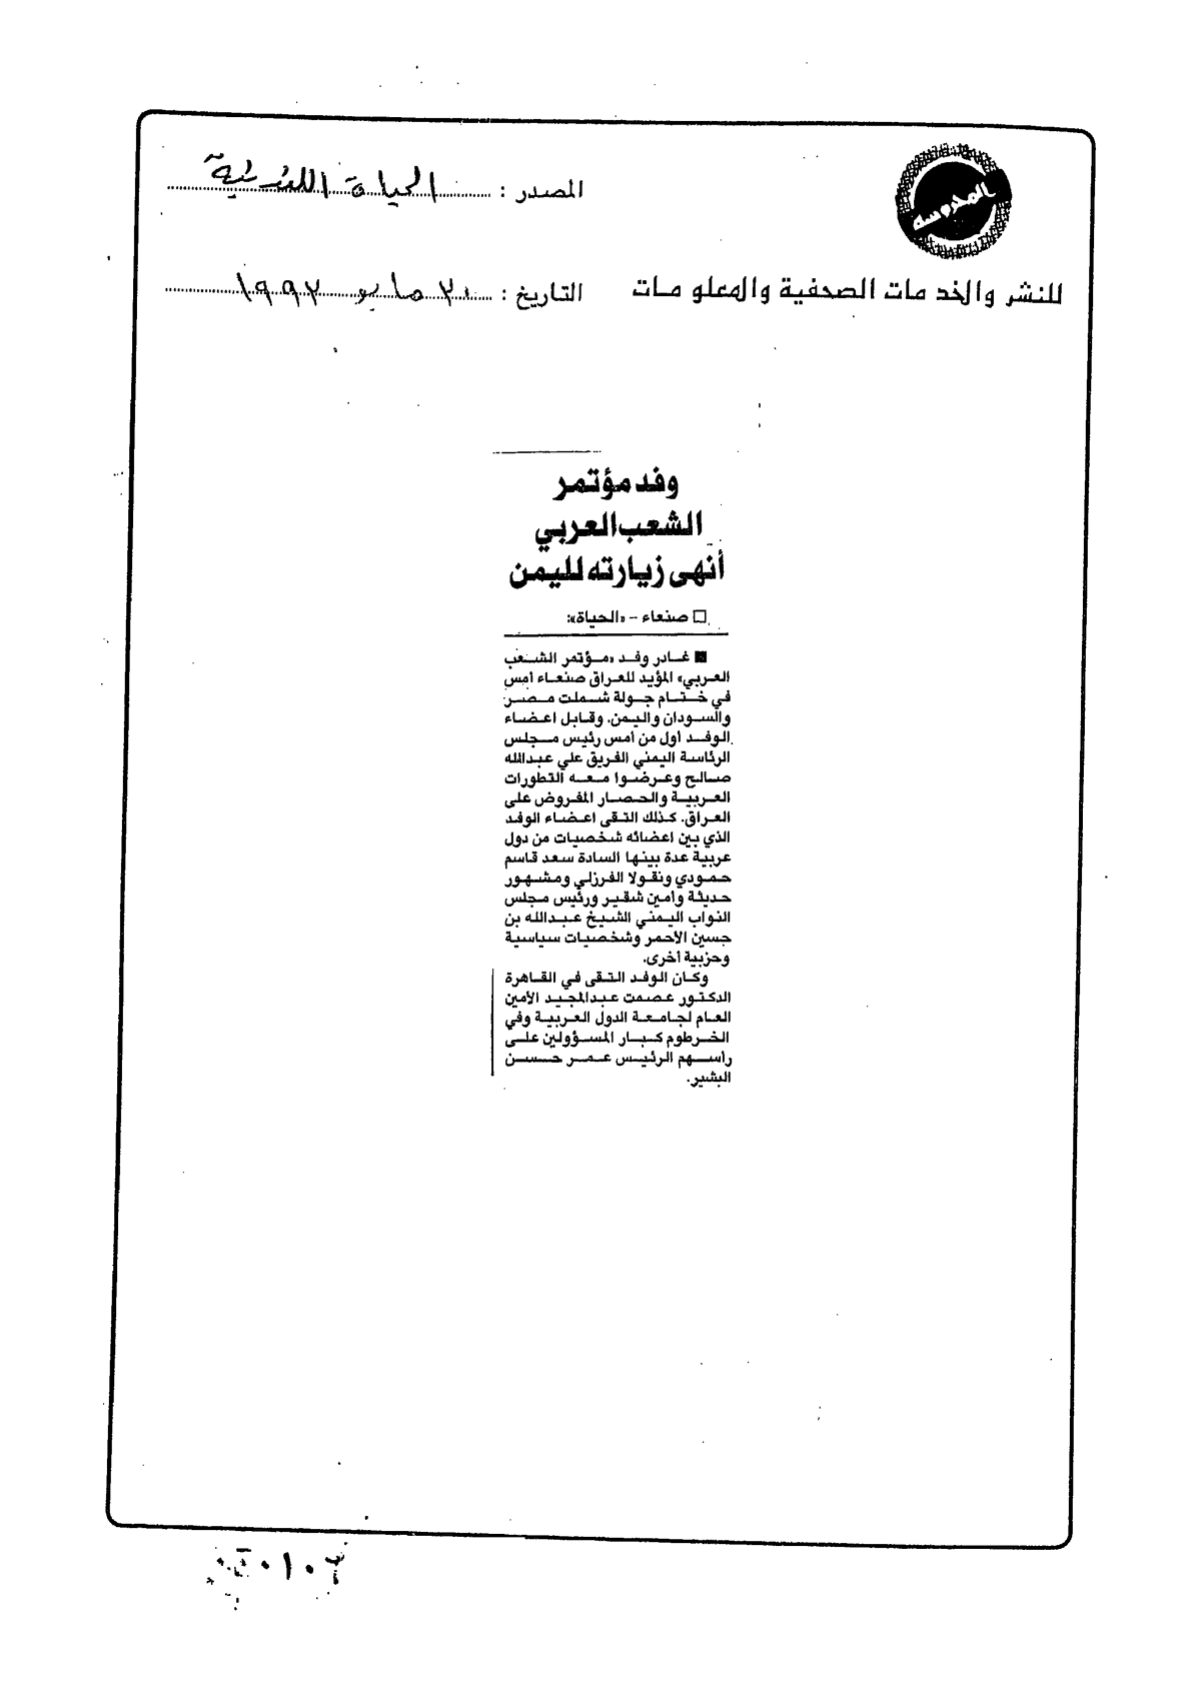 المحروسة
المصدر : الحياة اللندنية
للنشر والخدمات الصحفية والمعلومات
التاريخ : ٢٠ مايو ١٩٩٢
وفد مؤتمر
الشعب العربي
أنهى زيارته لليمن
□ صنعاء – «الحياة»:
■ غادر وفد «مؤتمر الشعب
العربي» المؤيد للعراق صنعاء أمس
في ختام جولة شملت مصر
والسودان واليمن. وقابل اعضاء
الوفد أول من أمس رئيس مجلس
الرئاسة اليمني الفريق علي عبدالله
صالح وعرضوا معه التطورات
العربية والحصار المفروض على
العراق. كذلك التقى اعضاء الوفد
الذي بين اعضائه شخصيات من دول
عربية عدة بينها السادة سعد قاسم
حمودي ونقولا الفرزلي ومشهور
حديثة وأمين شقير ورئيس مجلس
النواب اليمني الشيخ عبدالله بن
حسين الأحمر وشخصيات سياسية
وحزبية أخرى.
وكان الوفد التقى في القاهرة
الدكتور عصمت عبدالمجيد الأمين
العام لجامعة الدول العربية وفي
الخرطوم كبار المسؤولين على
رأسهم الرئيس عمر حسن
البشير.